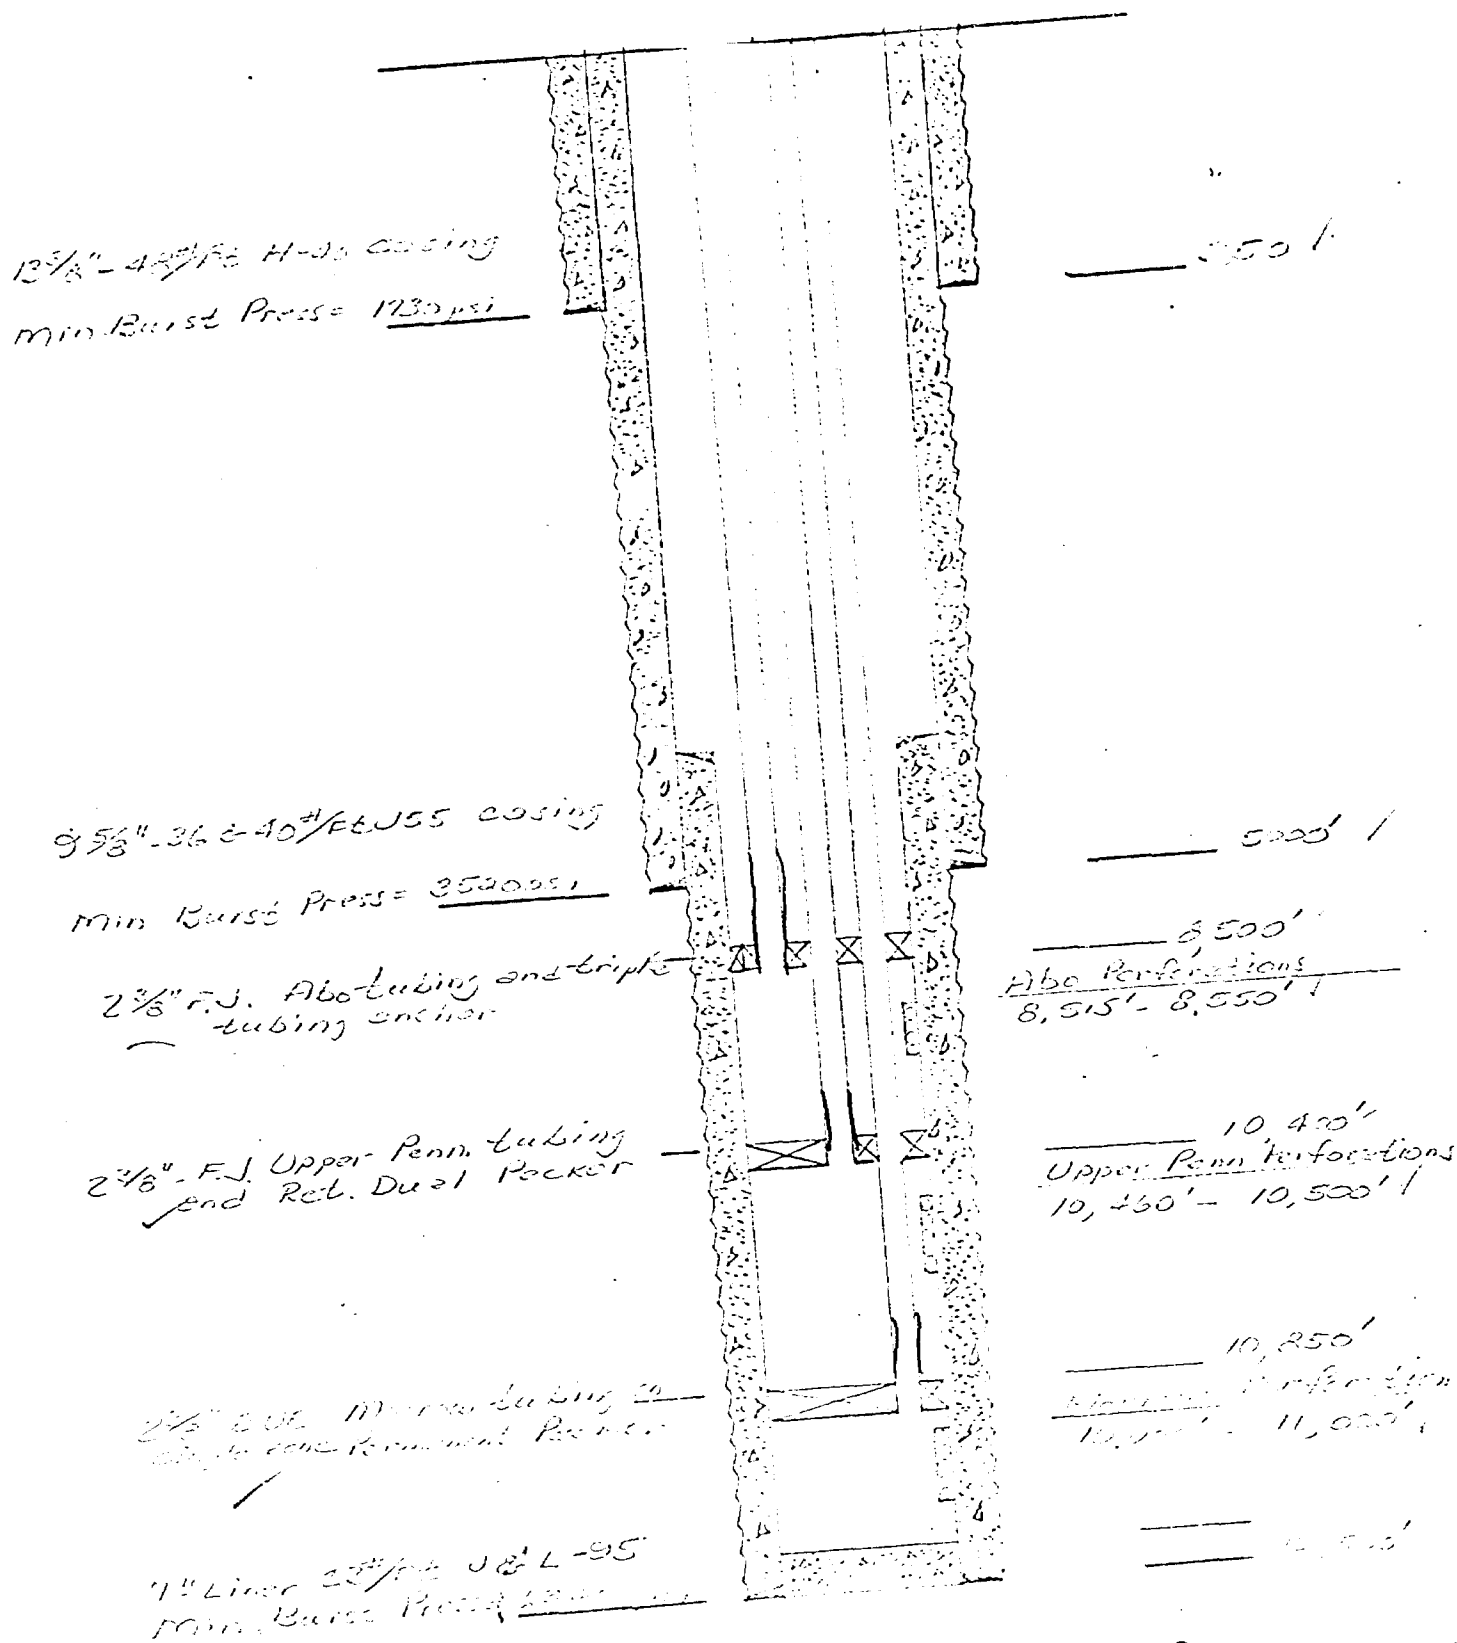 13 3/8" - 48#/Ft H-40 casing
350'
Min. Burst Press = 1730 psi
9 5/8" - 36 & 40#/Ft J55 casing
5000'
Min Burst Press = 3520 psi
8,500'
2 3/8" F.J. Abo tubing and triple
tubing anchor
Abo Perforations
8,515' - 8,550'
10,400'
2 3/8" - F.J. Upper Penn. tubing
and Ret. Dual Packer
Upper Penn Perforations
10,460' - 10,500'
10,850'
2 3/8" EUE tubing
Permanent Packer
Perforation
11,000'
7" Liner J & L-95
Min. Burst Press